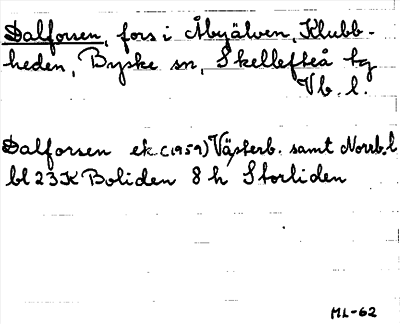 Dalforsen, fors i Åbyälven, Klubb-
heden, Byske sn, Skellefteå tg
Vb. l.
Dalforsen ek (1959) Västerb. samt Norrb. l
bl 23 K Boliden 8 h Storliden
ML-62